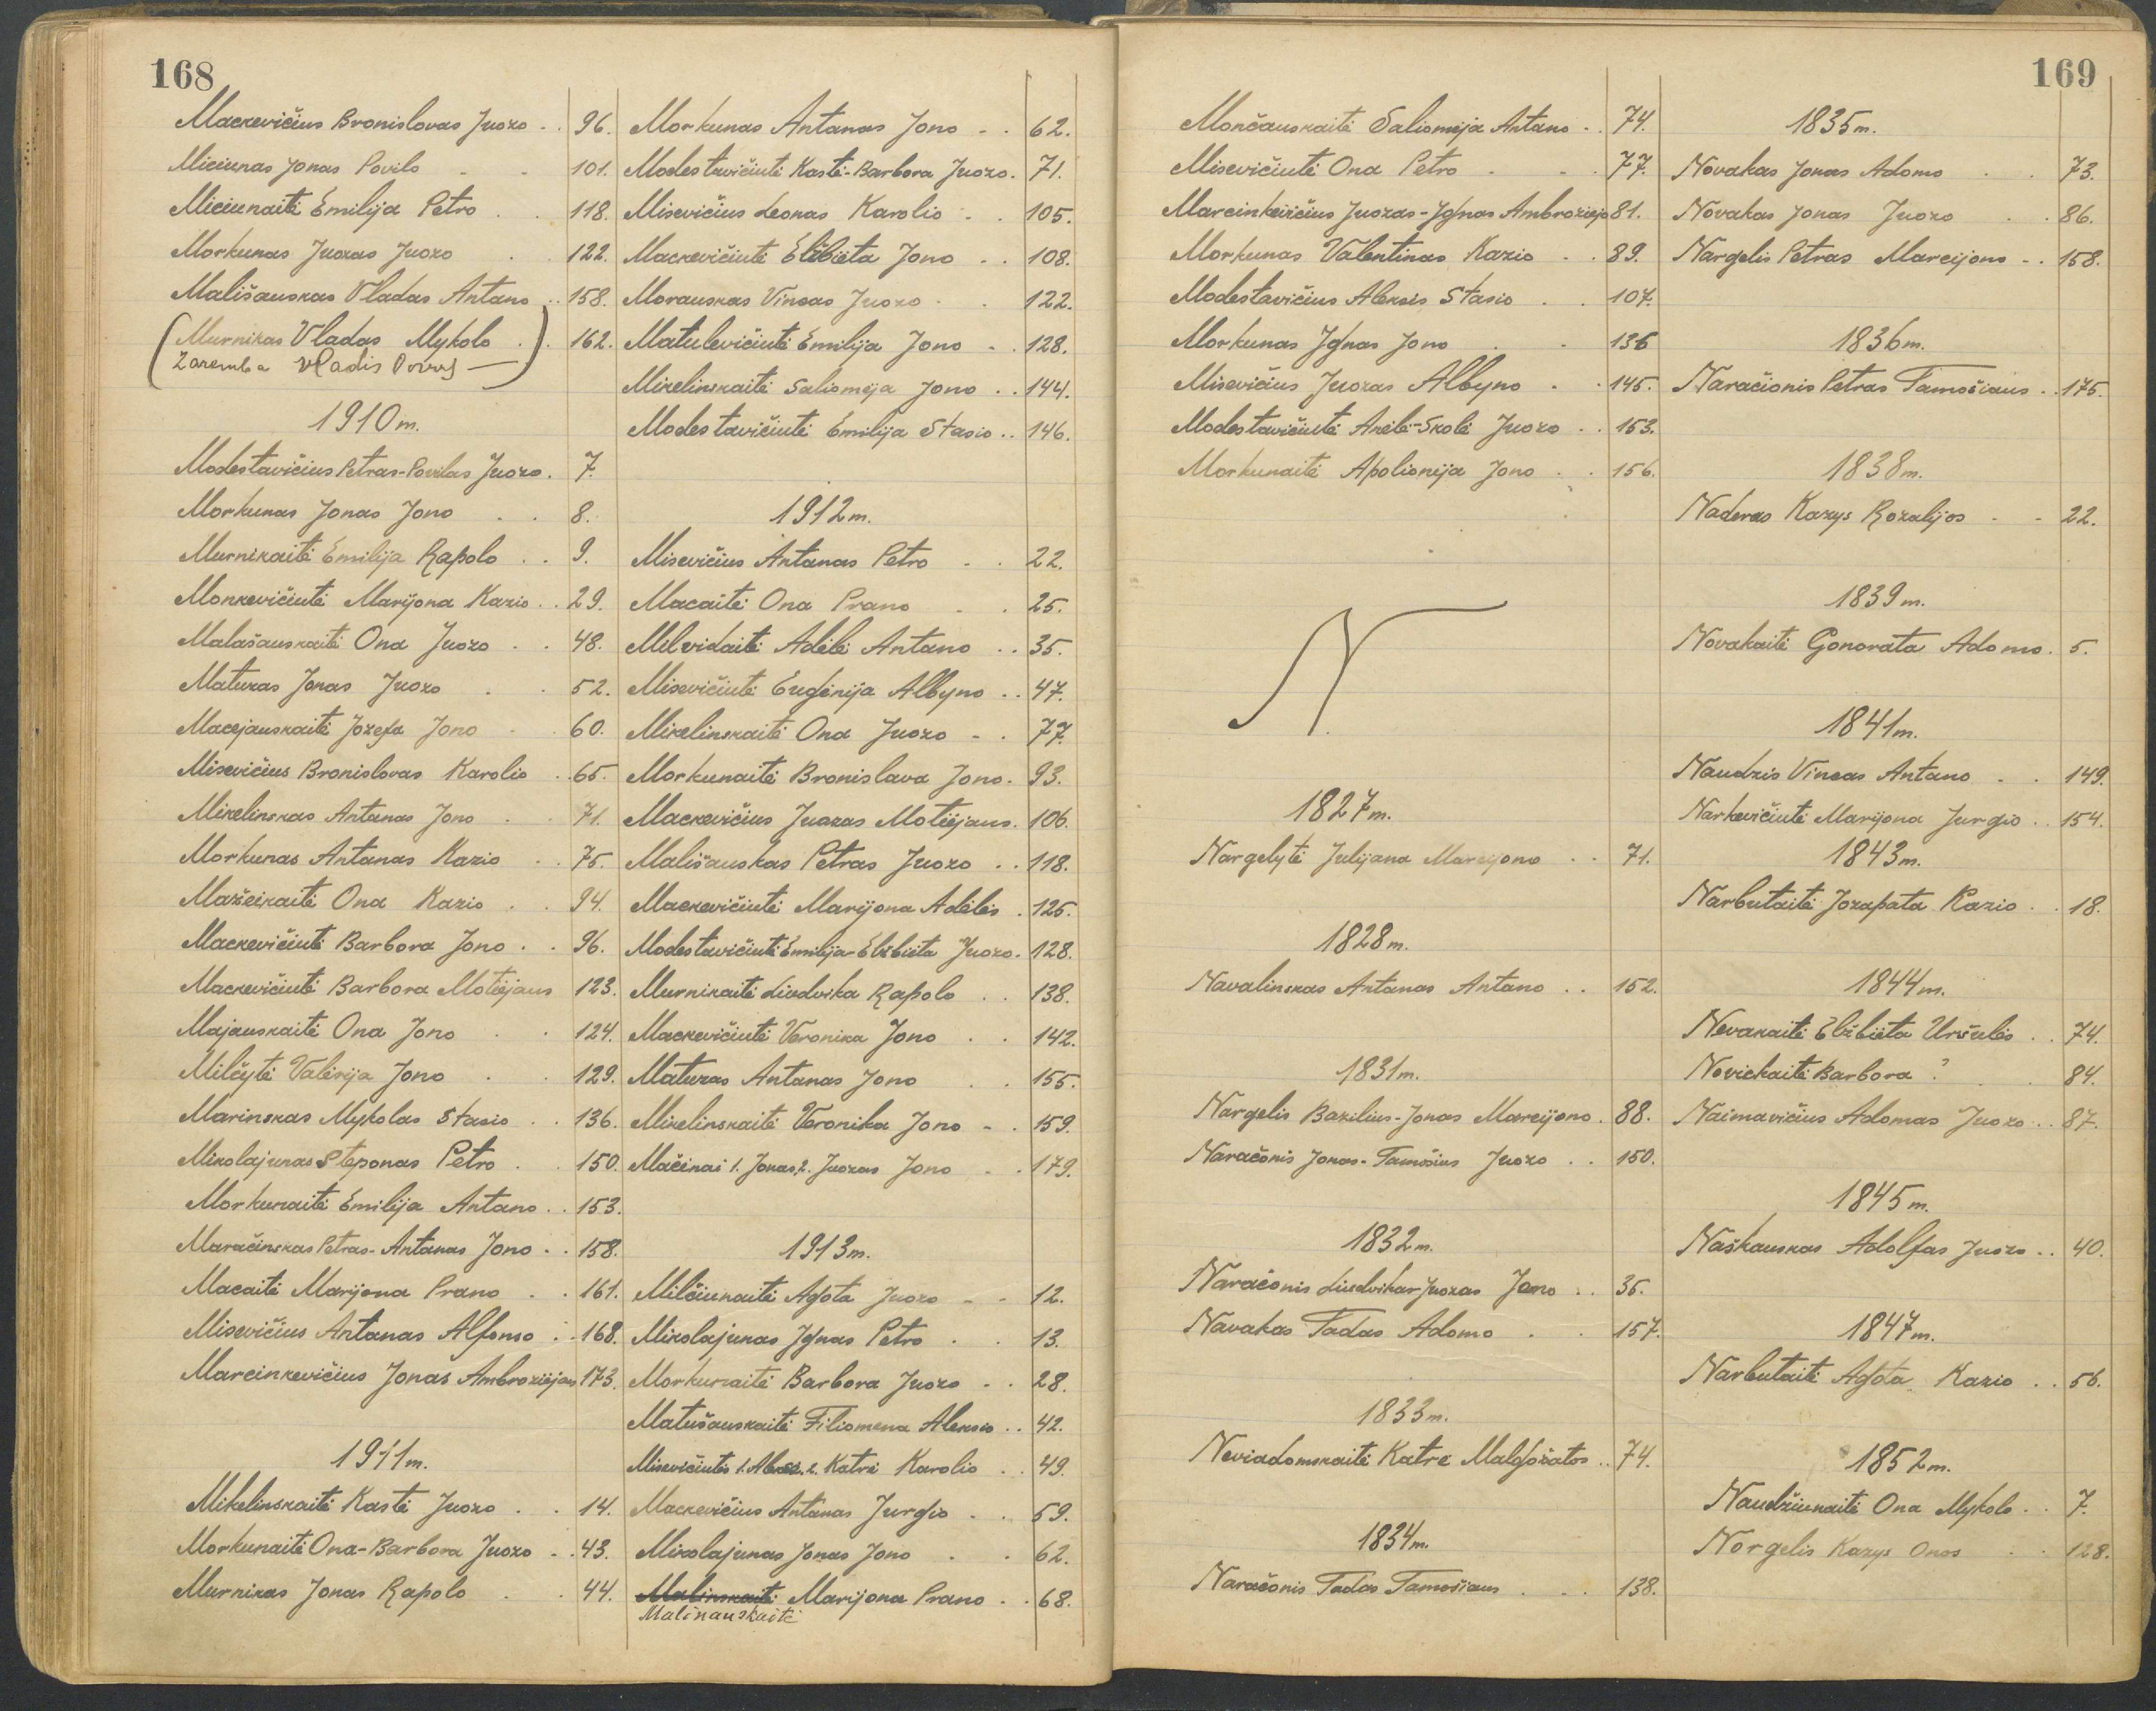 168
Mackevičius Bronislovas Juozo . . 96.
Miciunas Jonas Povilo . . 101.
Miciunaitė Emilija Petro . . 118.
Morkunas Juozas Juozo . 122.
Mališauskas Vladas Antano . . 158.
(Murnikas Vladas Mykolo . ) . 162.
Zaremba Vladis
1910 m.
Modestavičius Petras-Povilas Juozo . 7.
Morkunas Jonas Jono . . 8.
Murnikaitė Emilija Rapolo . . 9.
Monkevičiutė Marijona Kazio . . 29.
Malašauskaitė Ona Juozo . . 48.
Matukas Jonas Juozo . . 52.
Macejauskaitė Jozefa Jono . . 60.
Misevičius Bronislovas Karolio . . 65.
Mikelinskas Antanas Jono . . 71.
Morkunas Antanas Kazio . . 75.
Mažeikaitė Ona Kazio . . 94.
Mackevičiutė Barbora Jono . . 96.
Mackevičiutė Barbora Motiejaus 123.
Majauskaitė Ona Jono . . 124.
Milčytė Valerija Jono . . 129.
Marinskas Mykolas Stasio . . 136.
Mikolajunas Steponas Petro . . 150.
Morkunaitė Emilija Antano . . 153.
Maračinskas Petras-Antanas Jono . . 158.
Macaitė Marijona Prano . . 161.
Misevičius Antanas Alfonso . . 168.
Marcinkevičius Jonas Ambroziejaus 173.
1911 m.
Mikelinskaitė Kastė Juozo . . 14.
Morkunaitė Ona-Barbora Juozo . . 43.
Murnikas Jonas Rapolo . . 44.
Morkunas Antanas Jono . . 62.
Modestavičiutė Kastė-Barbora Juozo . 71.
Misevičius Leonas Karolio . . 105.
Mackevičiutė Elžbieta Jono . . 108.
Morauskas Vincas Juozo . . 122.
Matulevičiutė Emilija Jono . . 128.
Mikelinskaitė Saliomėja Jono . . 144.
Modestavičiutė Emilija Stasio . . 146.
1912 m.
Misevičius Antanas Petro . . 22.
Macaitė Ona Prano . . 25.
Milvidaitė Adelė Antano . . 35.
Misevičiutė Eugenija Albyno . . 47.
Mikelinskaitė Ona Juozo . . 77.
Morkunaitė Bronislava Jono . 93.
Mackevičius Juozas Motiejaus . 106.
Mališauskas Petras Juozo . . 118.
Mackevičiutė Marijona Adelės . 125.
Modestavičiutė Emilija-Elžbieta Juozo . 128.
Murnikaitė Liudvika Rapolo . . 138.
Mackevičiutė Veronika Jono . . 142.
Matukas Antanas Jono . . 155.
Mikelinskaitė Veronika Jono . . 159.
Mačinai 1. Jonas, 2. Juozas Jono . . 179.
1913 m.
Milčiunaitė Agota Juozo . . 12.
Mikolajunas Ignas Petro . . 13.
Morkunaitė Barbora Juozo . . 28.
Matušauskaitė Filiomena Aleksio . . 42.
Misevičiutės 1. 2. Katrė Karolio . . 49.
Mackevičius Antanas Jurgio . . 59.
Mikolajunas Jonas Jono . . 62.
Malinskaitė Marijona Prano . . 68.
Malinauskaitė
169
Mončauskaitė Saliomėja Antano . . 74.
Misevičiutė Ona Petro . . . 77.
Marcinkevičius Juozas-Ignas Ambroziejo 81.
Morkunas Valentinas Kazio . . 89.
Modestavičius Aleksis Stasio . . 107.
Morkunas Ignas Jono . . 136
Misevičius Juozas Albyno . . 145.
Modestavičiutė Anelė-Skolė Juozo . . 153.
Morkunaitė Apolionija Jono . . 156.
N
1827 m.
Nargelytė Julijana Marcijono . . 71.
1828 m.
Navalinskas Antanas Antano . . 152.
1831 m.
Nargelis Bazilius-Jonas Marcijono . 88.
Naračonis Jonas-Tamošius Juozo . . 150.
1832 m.
Naračonis Liudvikas-Juozas Jono . . 35.
Navakas Tadas Adomo . . 157.
1833 m.
Neviadomskaitė Katrė Malgožatos . . 74.
1834 m.
Naračonis Tadas Tamošiaus . . . 138.
1835 m.
Novakas Jonas Adomo . . 73.
Novakas Jonas Juozo . . 86.
Nargelis Petras Marcijono . . 158.
1836 m.
Naračionis Petras Tamošiaus . . 175.
1838 m.
Naderas Kazys Rozalijos . . 22.
1839 m.
Novakaitė Gonorata Adomo . 5.
1841 m.
Naudzis Vincas Antano . . 149.
Narkevičiutė Marijona Jurgio . . 154.
1843 m.
Narbutaitė Jozapata Kazio . . 18.
1844 m.
Nevakaitė Elžbieta Uršulės . . 74.
Novickaitė Barbora ? . . 84.
Naimavičius Adomas Juozo . . 87.
1845 m.
Naškauskas Adolfas Juozo . . 40.
1847 m.
Narbutaitė Agota Kazio . . 56.
1852 m.
Naudžiunaitė Ona Mykolo . . 7.
Norgelis Kazys Onos . . 128.